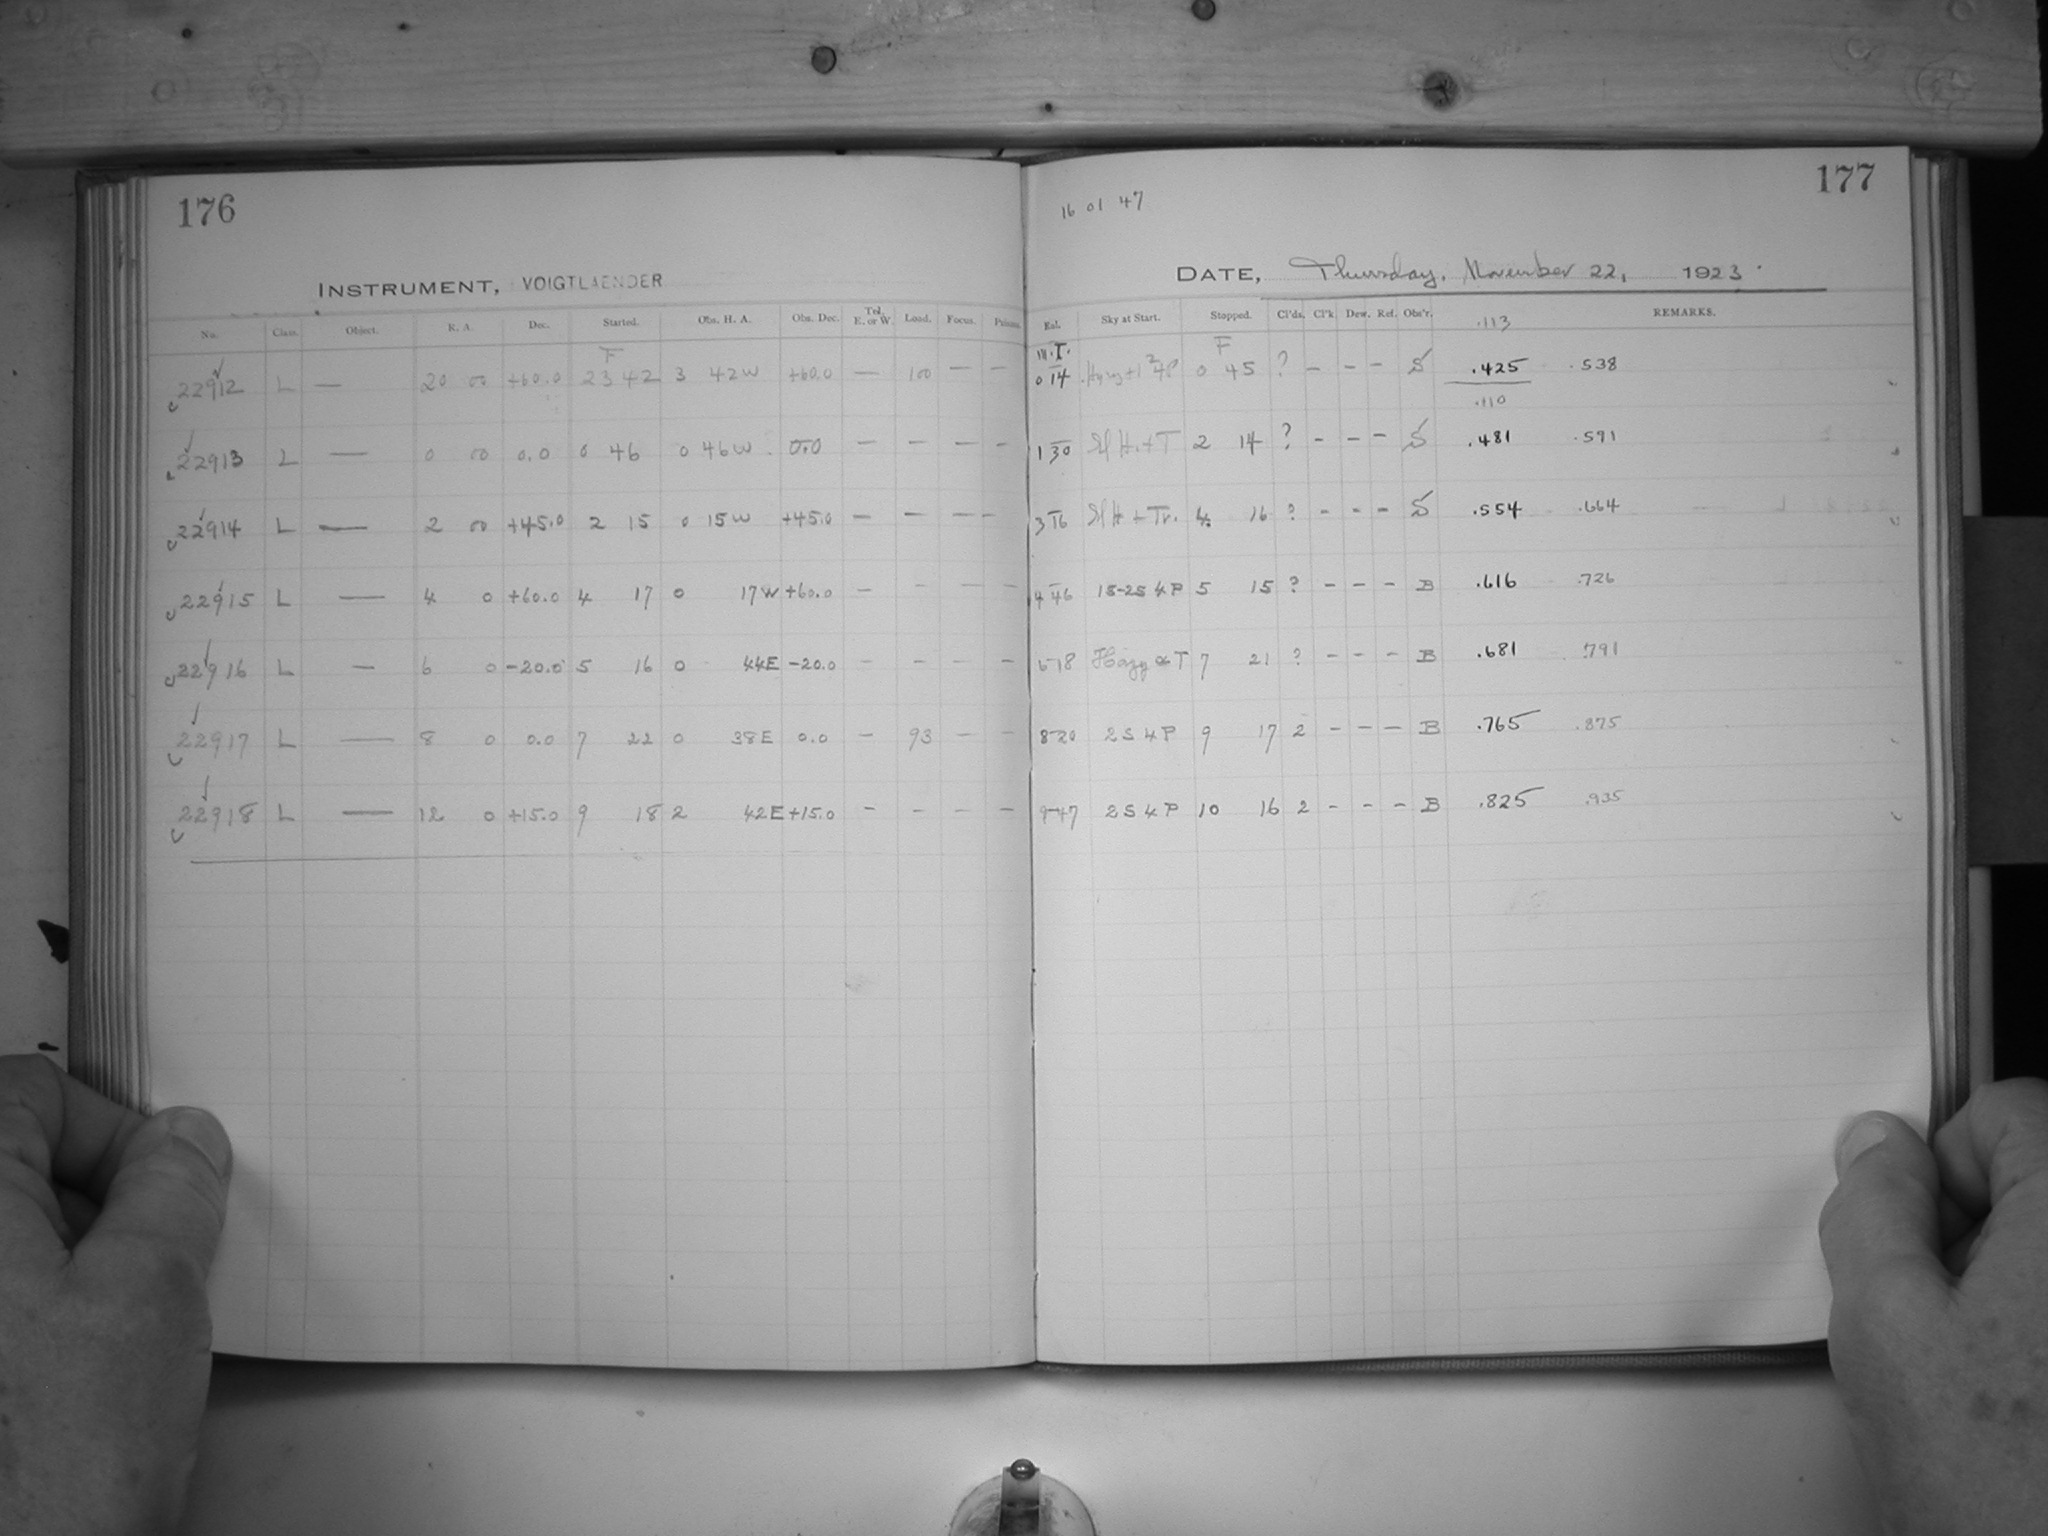 176
INSTRUMENT, VOIGTLAENDER
No. Class. Object. R. A. Dec. Started. Obs. H. A. Obs. Dec. Tel. E. or W. Load. Focus. Prisms.
F
22912 L — 20 00 +60.0 23 42 3 42W +60.0 — 100 — —
22913 L — 0 00 0.0 0 46 0 46W 0.0 — — — —
22914 L — 2 00 +45.0 2 15 0 15W +45.0 — — — —
22915 L — 4 0 +60.0 4 17 0 17W +60.0 — — — —
22916 L — 6 0 -20.0 5 16 0 44E -20.0 — — — —
22917 L — 8 0 0.0 7 22 0 38E 0.0 — 93 — —
22918 L — 12 0 +15.0 9 18 2 42E +15.0 — — — —
177
16 01 47
DATE, Thursday, November 22, 1923
Exl. Sky at Start. Stopped. Cl'ds. Cl'k. Dew. Ref. Obs'r. REMARKS.
.113
M.T. F
0 14 0 45 ? — — — S .425 .538
.110
1 30 Sl H. + T 2 14 ? — — — S .481 .591
3 16 Sl H + Tr. 4 16 ? — — — S .554 .664
4 46 18-2S 4P 5 15 ? — — — B .616 .726
6 18 Hazy & T 7 21 ? — — — B .681 .791
8 20 2S 4P 9 17 2 — — — B .765 .875
9 47 2S 4P 10 16 2 — — — B .825 .935